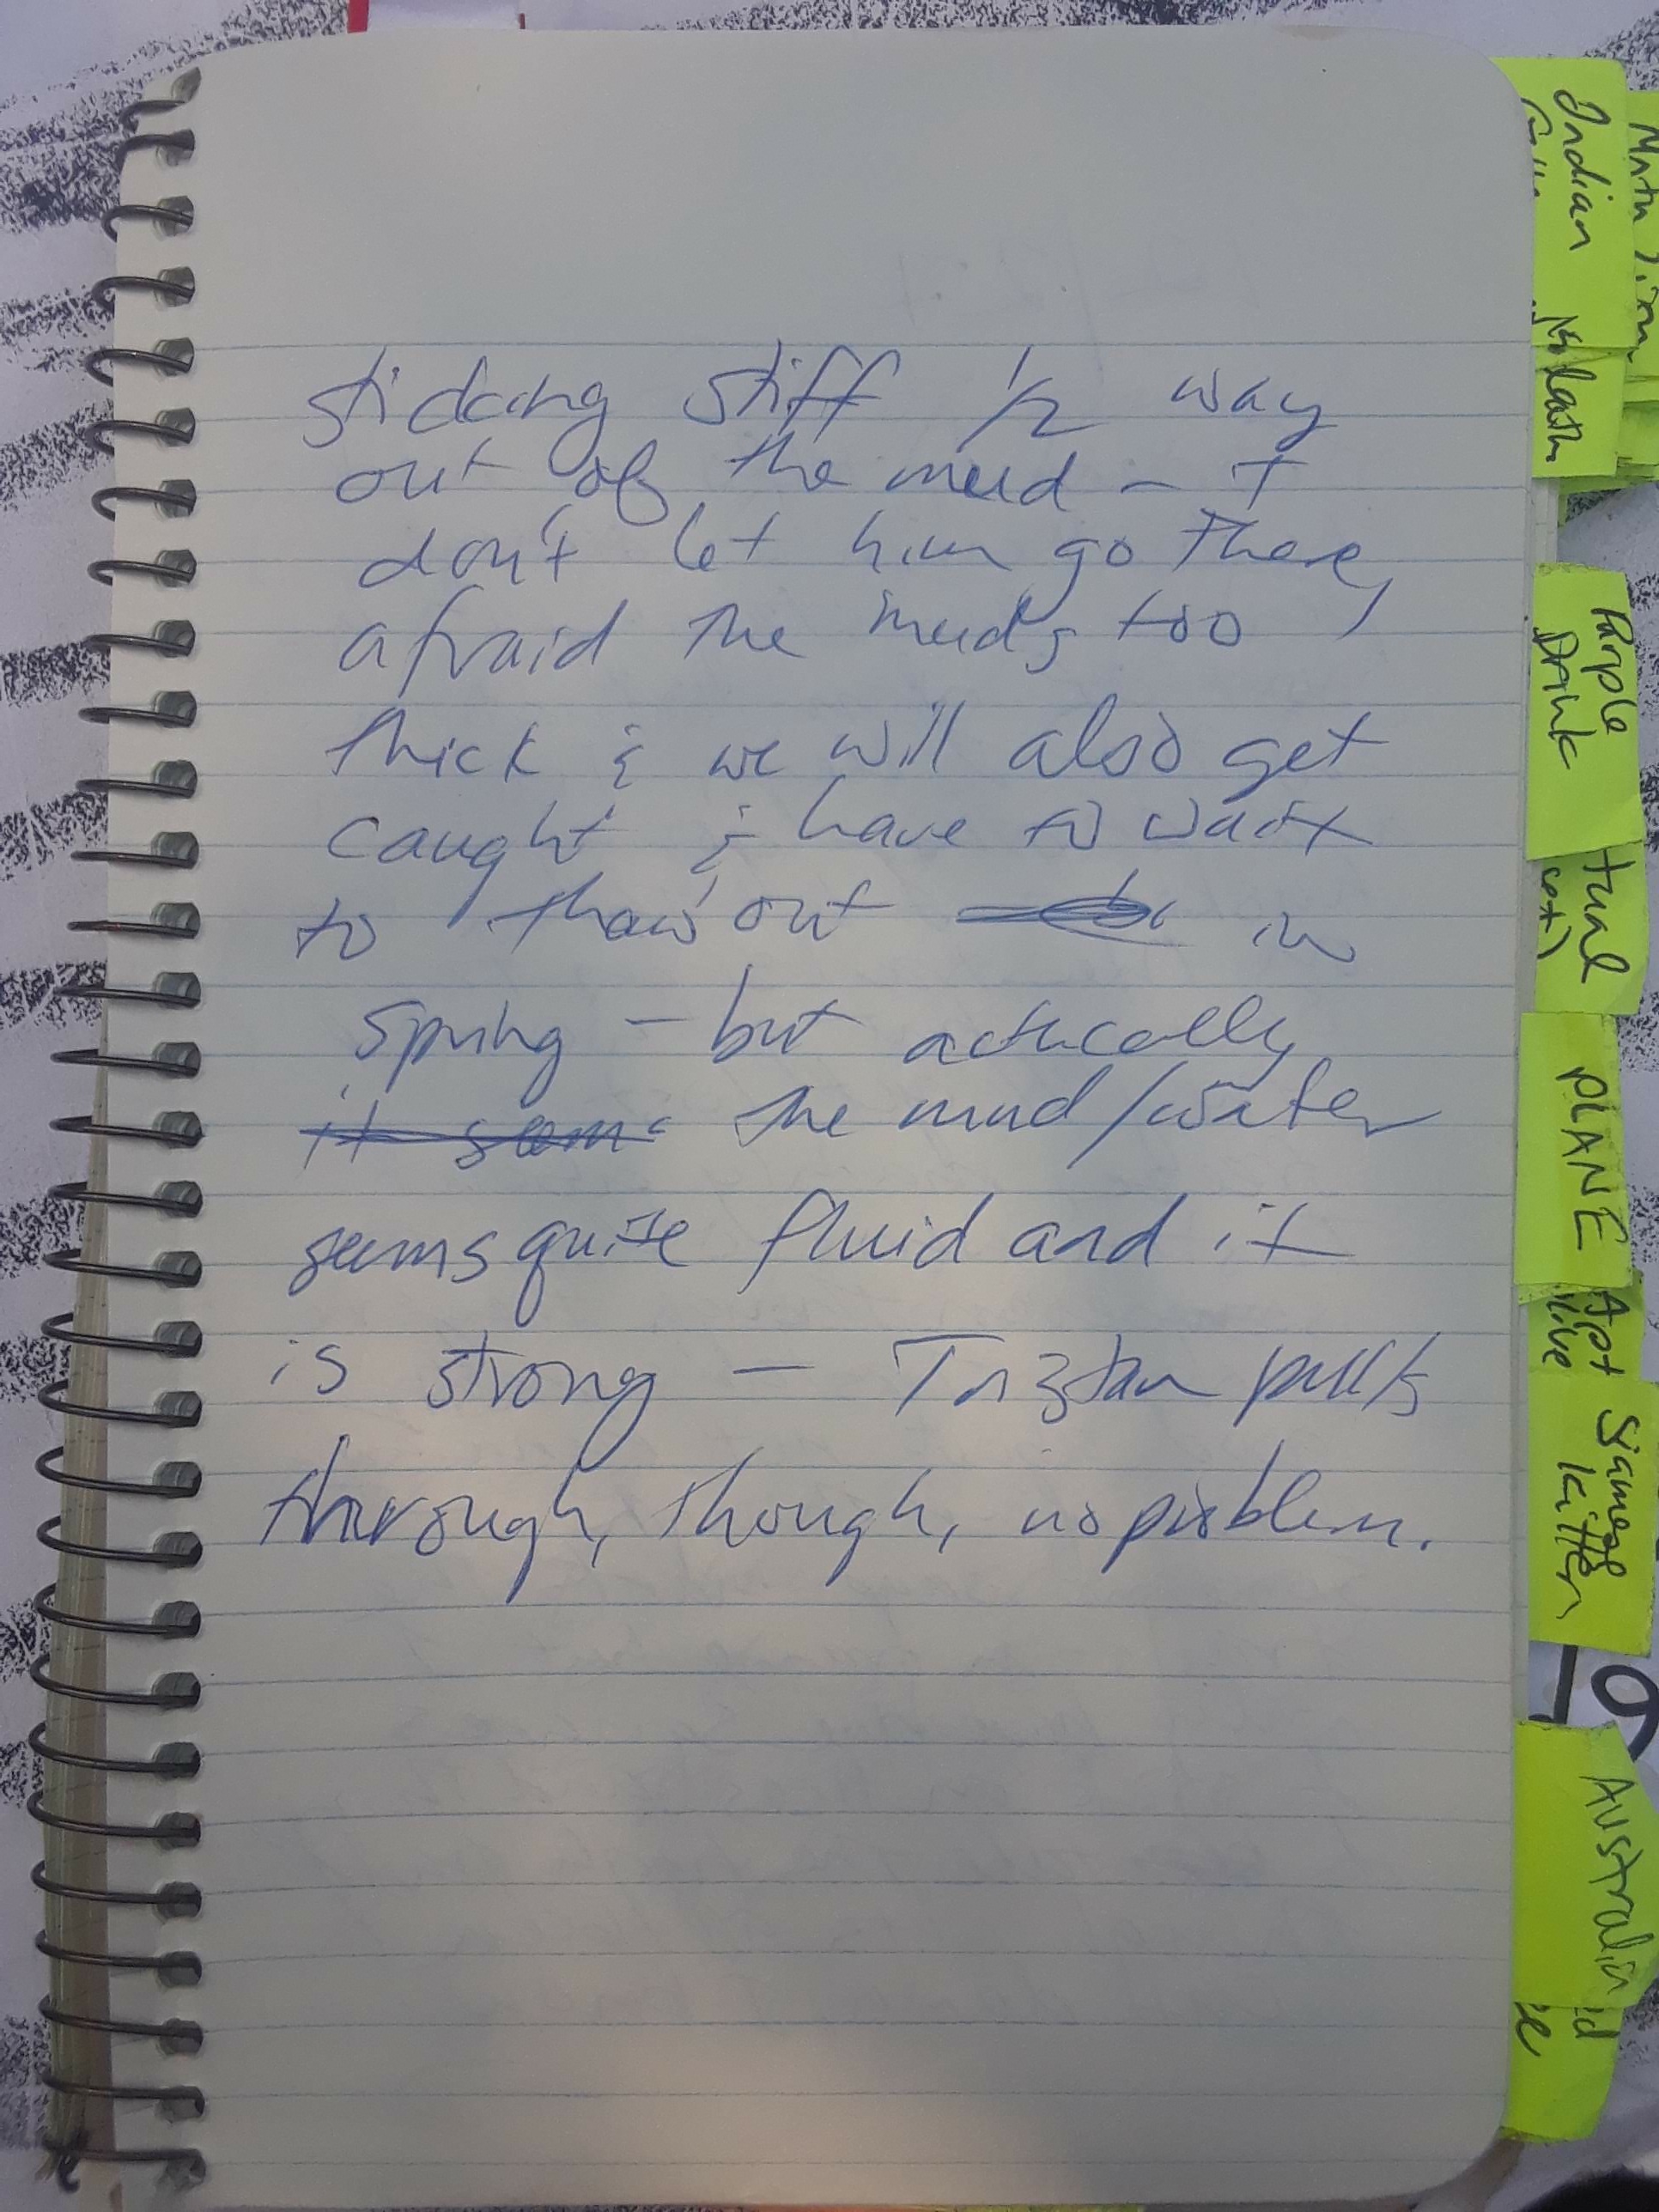 sticking stiff 1/2 way
out of the mud - I
don't let him go there,
afraid the mud's too
thick & we will also get
caught & have to wait
to thaw out in
spring - but actually
it seems the mud/water
seems quite fluid and it
is strong - Triztan pulls
through, though, no problem.
Indian
Math
Purple
Drink
tual
cat)
PLANE
Apt
live
Siamese
kitten
19
Australia